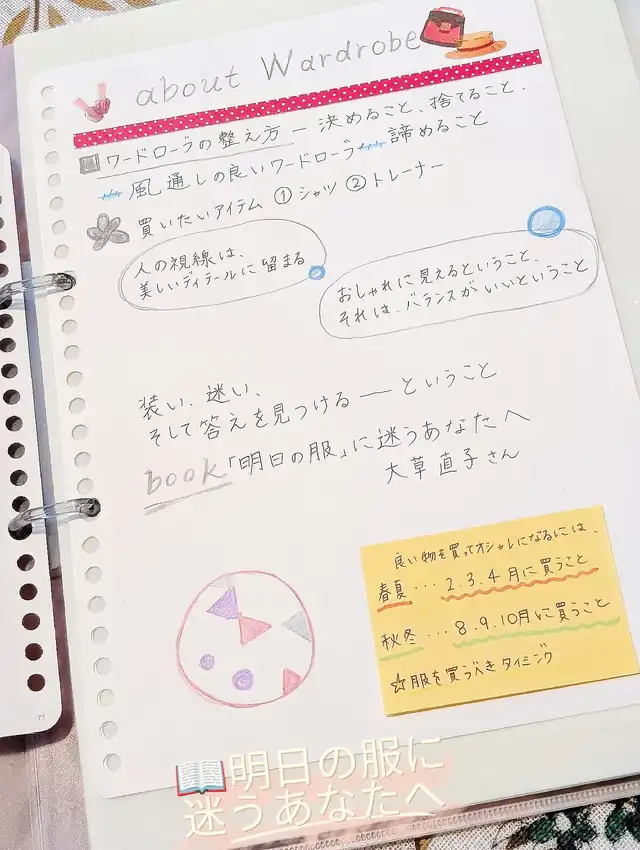 about Wardrobe
ワードローブの整え方 ー 決めること、捨てること、
風通しの良いワードローブ 諦めること
買いたいアイテム ①シャツ ②トレーナー
人の視線は、
美しいディテールに留まる
おしゃれに見えるということ、
それは、バランスがいいということ
装い、迷い、
そして答えを見つける ― ということ
book「明日の服」に迷うあなたへ
大草直子さん
良い物を買ってオシャレになるには、
春夏・・・2.3.4月に買うこと
秋冬・・・8.9.10月に買うこと
☆服を買うべきタイミング
📖明日の服に
迷うあなたへ